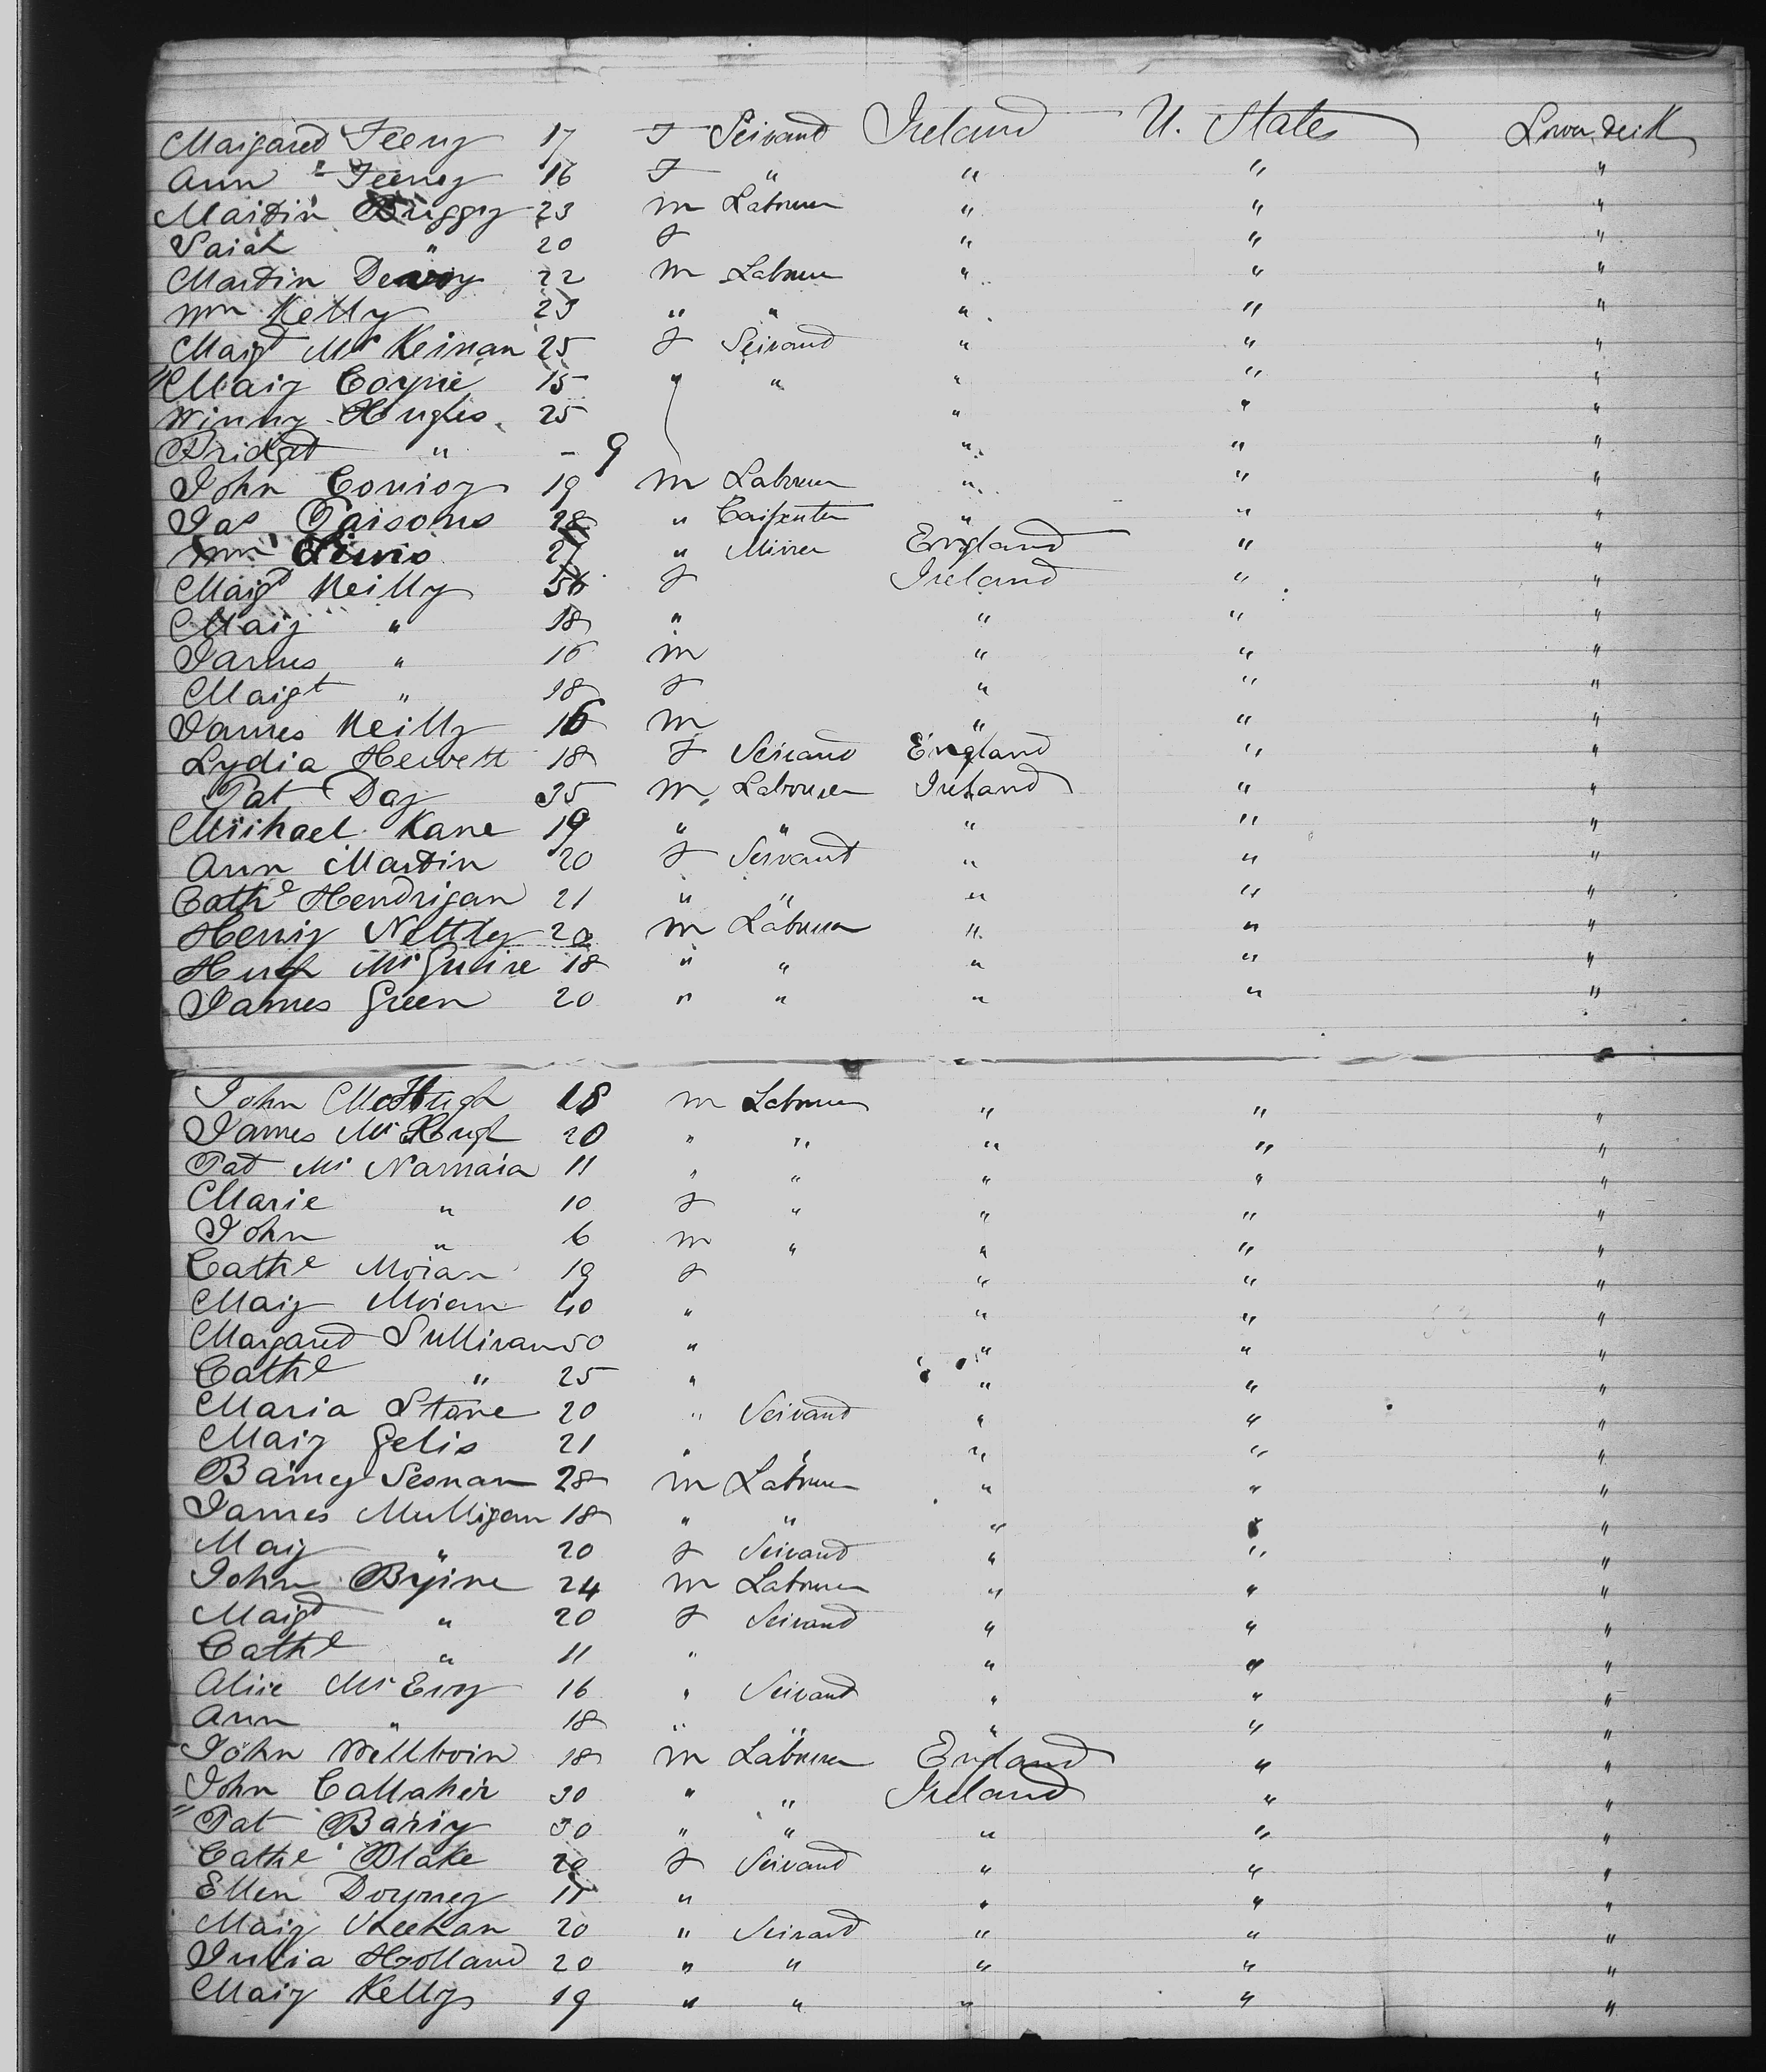 Margared Feeny 17 F Servand Ireland U. States Lower deck
Ann Feeney 16 F " " " "
Martin Briggy 23 m Labourer " " "
Sarah " 20 F " " "
Martin Devoy 22 m Labourer " " "
Wm Kelly 23 " " " " "
Margt Mc Keirnan 25 F Servand " " "
Mary Coyne 15 " " " " "
Winny Hughes 25 " " "
Bridget " - 9 " " "
John Conroy 19 m Labourer " " "
Jas Parsons 28 " Carpenter " " "
Wm 27 " Miner England " "
Margt Reilly 56 F Ireland " "
Mary " 18 " " " "
James " 16 m " " "
Margt " 18 F " " "
James Reilly 16 m " " "
Lydia Hewett 18 F Servand England " "
Pat Day 35 m Labourer Ireland " "
Michael Kane 19 " " " " "
Ann Martin 20 F Servant " " "
Cathe Hendrigan 21 " " " " "
Henry Nettly 20 m Labourer " " "
Hugh Mc Guire 18 " " " " "
James Green 20 " " " " "
John McHugh 18 m Labourer " " "
James Mc Hugh 20 " " " " "
Pat Mc Namara 11 " " " " "
Marie " 10 F " " " "
John " 6 m " " " "
Cathe Moran 19 F " " "
Mary Moran 40 " " " "
Margared Sullivan 50 " " " "
Cathe " 25 " " " "
Maria Stone 20 " Servand " " "
Mary Gelis 21 " " " " "
Barney Sesnan 28 m Labourer " " "
James Mulligan 18 " " " " "
Mary " 20 F Servand " " "
John Byrne 24 m Labourer " " "
Margt " 20 F Servand " " "
Cathe " 11 " " " "
Alice Mc Evoy 16 " Servant " " "
Ann " 18 " " " " "
John Wellborn 18 m Labourer England " "
John Callaher 30 " " Ireland " "
Pat Barry 30 " " " " "
Cathe Blake 20 F Servand " " "
Ellen Doyney 11 " " " "
Mary Sheehan 20 " Servand " " "
Julia Holland 20 " " " " "
Mary Kelly 19 " " " " "